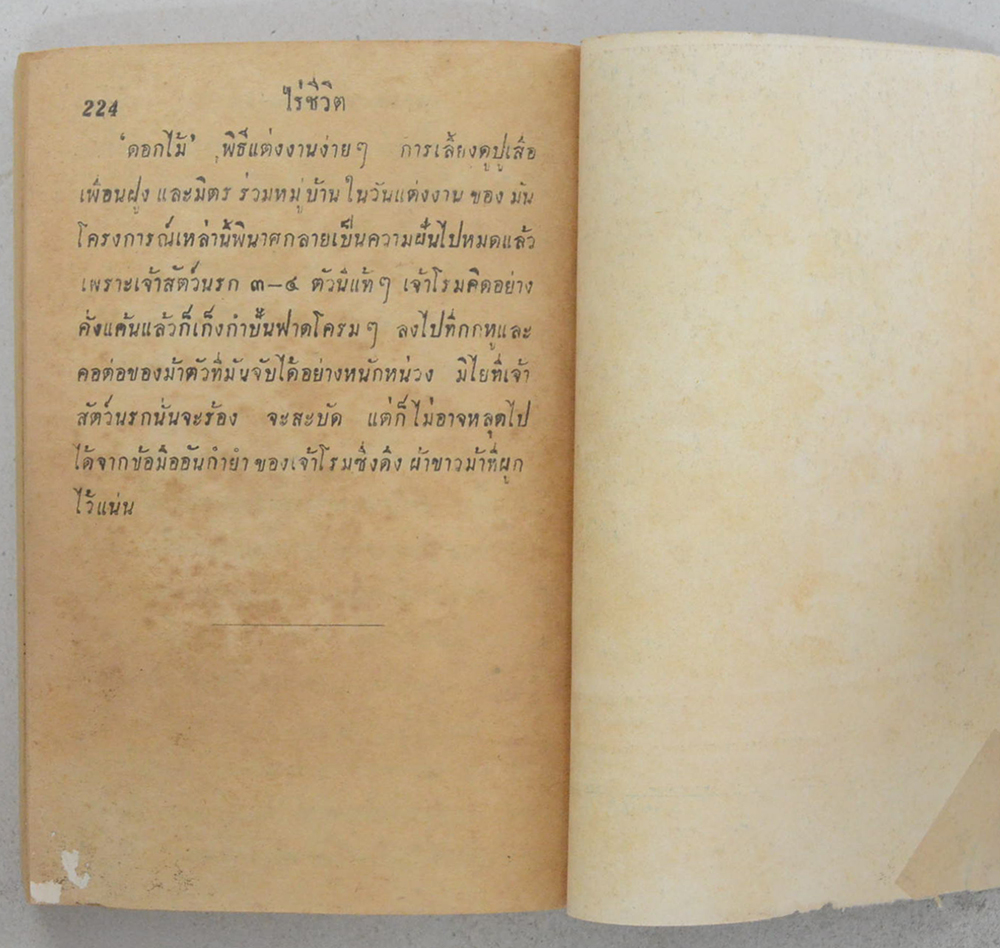 224
ไร่ชีวิต
'ดอกไม้' พิธีแต่งงานง่ายๆ การเลี้ยงดูปูเสื่อ
เพื่อนฝูง และมิตร ร่วมหมู่บ้าน ในวันแต่งงาน ของ มัน
โครงการณ์เหล่านี้พินาศกลายเป็นความฝันไปหมดแล้ว
เพราะเจ้าสัตว์นรก ๓—๔ ตัวนี้แท้ๆ เจ้าโรมคิดอย่าง
คั่งแค้นแล้วก็เก็งกำปั้นฟาดโครมๆ ลงไปที่กกหูและ
คอต่อของม้าตัวที่มันจับได้อย่างหนักหน่วง มิไยที่เจ้า
สัตว์นรกนั่นจะร้อง จะสะบัด แต่ก็ไม่อาจหลุดไป
ได้จากข้อมืออันกำยำ ของเจ้าโรมซึ่งดึง ผ้าขาวม้าที่ผูก
ไว้แน่น